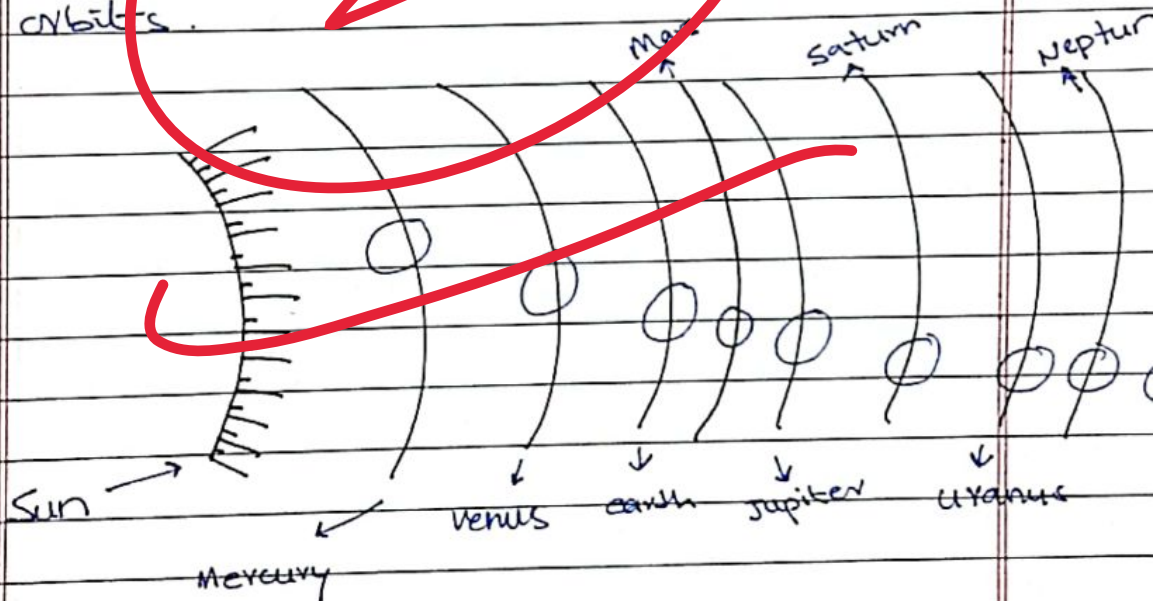 orbits.
Mars
Saturn
Neptun
Sun
Mercury
Venus
earth
Jupiter
Uranus